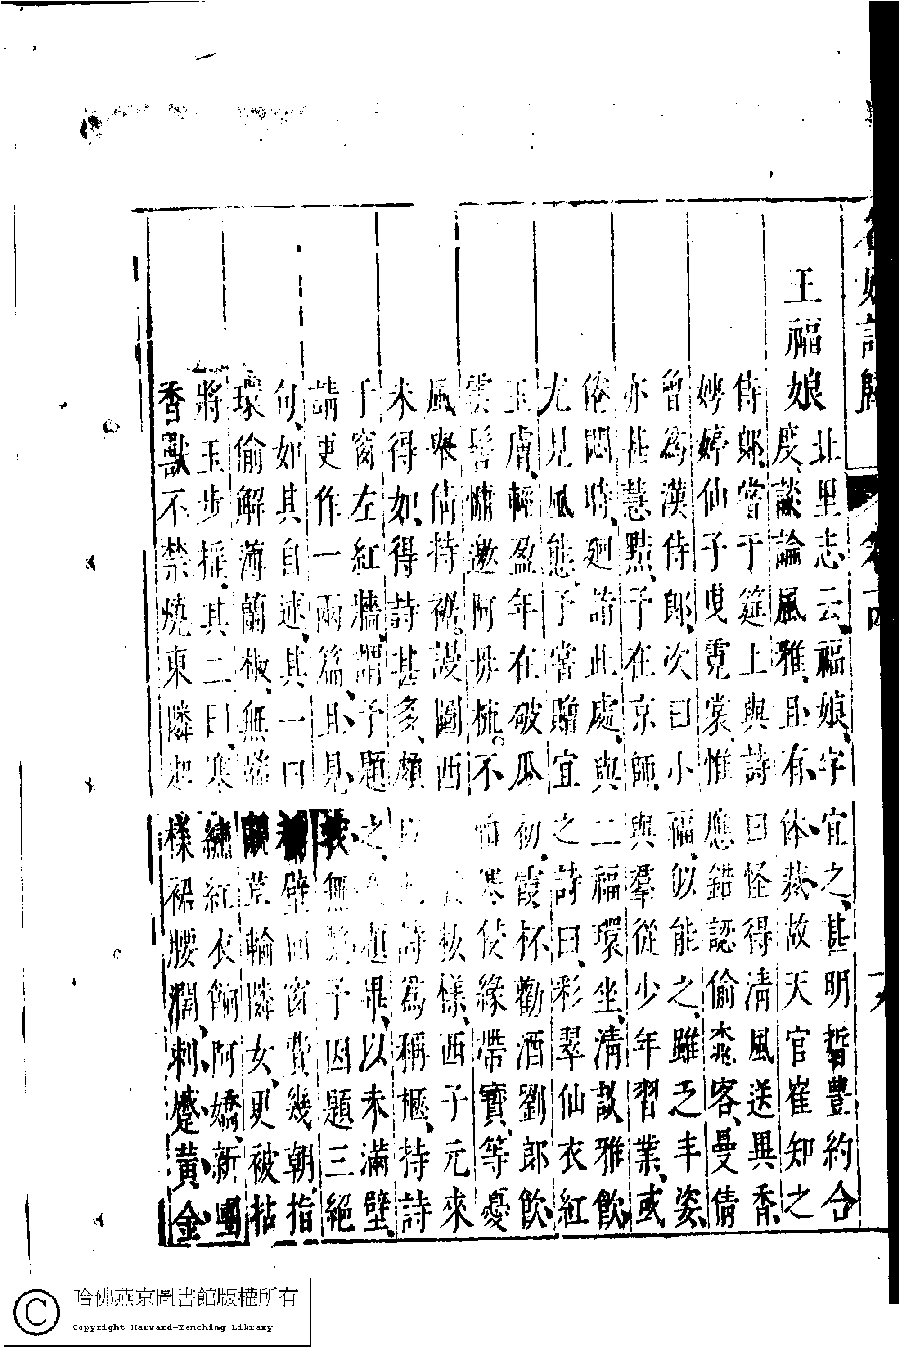 王福娘
北里志云、福娘、字宜之、甚明晳豐約合
度、談論風雅、且有体裁、故天官崔知之
侍郎、嘗于筵上與詩曰怪得清風送異香、
娉婷仙子曳霓裳、惟應錯認偷桃客、曼倩
曾為漢侍郎、次曰小福、似能之、雖乏丰姿、
亦甚慧黠、予在京師、與羣從少年習業、或
倦悶時、廻詣此處、與二福環坐、清談雅飲、
尤見風態、予嘗贈宜之詩曰、彩翠仙衣紅
玉膚、輕盈年在破瓜初、霞杯勸酒劉郎飲、
雲髻慵邀阿母梳。不怕寒侵緣帶寶、等憂
風舉倩持裾。謾圖西粧樣、西子元來
未得如、得詩甚多、頗曰詩為稱愜、持詩
于窗左紅牆、謂予題之、題畢、以未滿壁、
請更作一兩篇、且見戒無艷、予因題三絕
句、如其自述、其一曰移壁回窗費幾朝、指
環偷解薄蘭椒、無端鬭草輸隣女、更被拈
將玉步搖、其二曰、寒繡紅衣餉阿嬌、新團
香獸不禁燒東隣起樣裙腰濶、刺蹙黃金
哈佛燕京圖書館版權所有
Copyright Harvard-Yenching Library